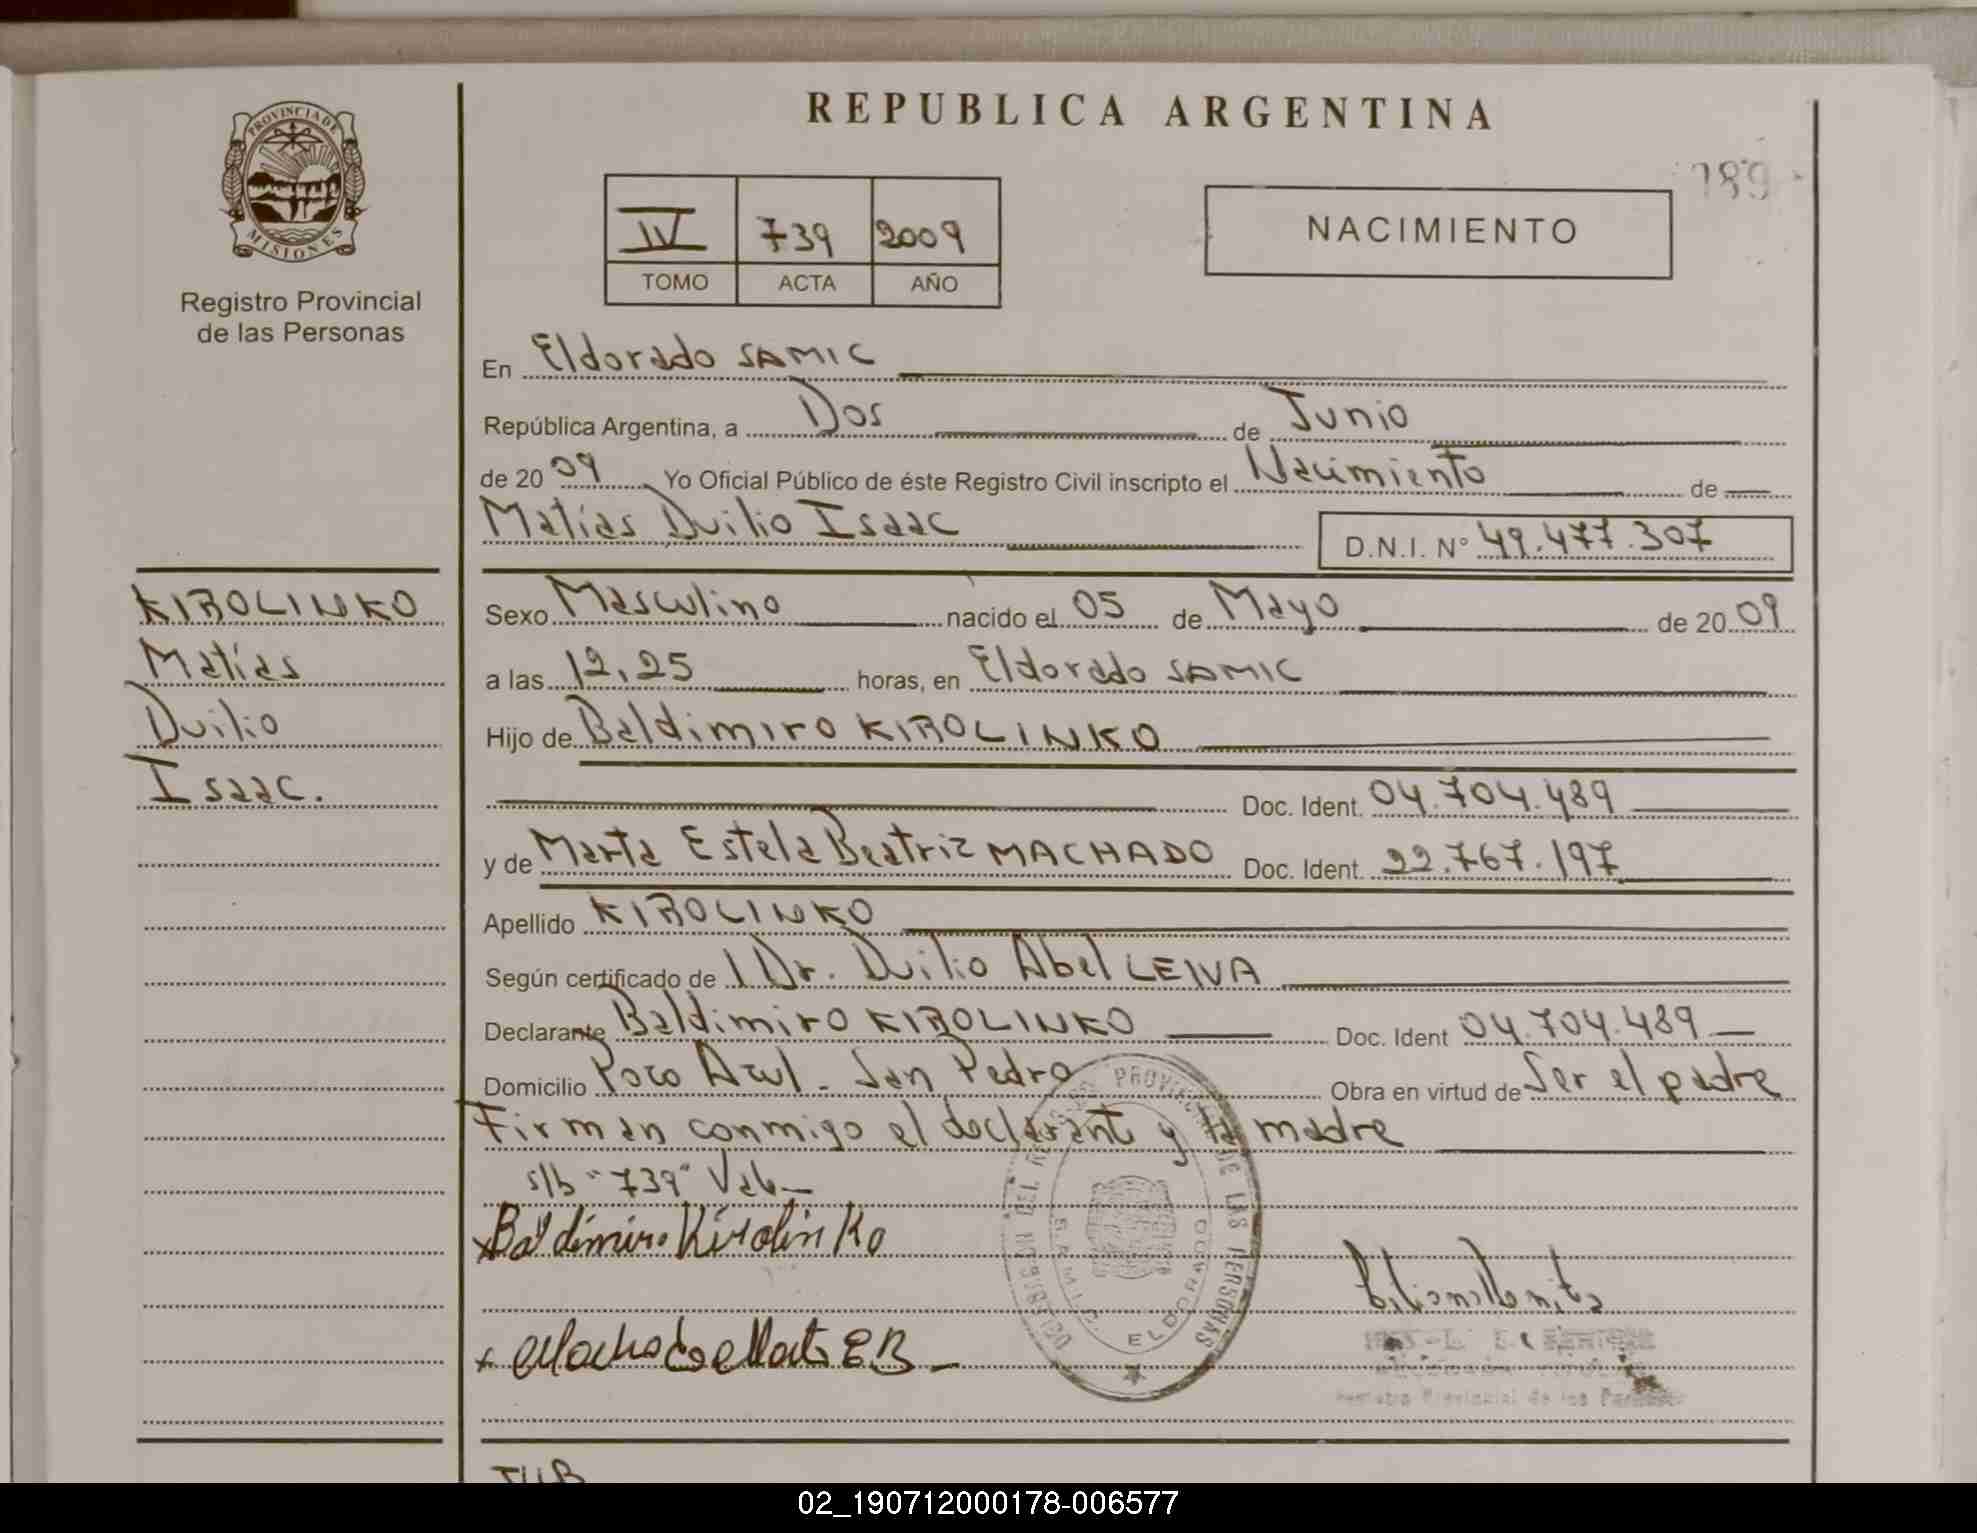 REPUBLICA ARGENTINA
PROVINCIA DE MISIONES
Registro Provincial
de las Personas
189
IV 739 2009
TOMO ACTA AÑO
NACIMIENTO
En Eldorado SAMIC
República Argentina, a Dos de Junio
de 20 09 Yo Oficial Público de éste Registro Civil inscripto el Nacimiento de
Matías Duilio Isaac
D.N.I. Nº 49.477.307
KIROLINKO
Matías
Duilio
Isaac.
Sexo Masculino nacido el 05 de Mayo de 20 09
a las 12,25 horas, en Eldorado SAMIC
Hijo de Baldimiro KIROLINKO
Doc. Ident. 04.704.489
y de Marta Estela Beatriz MACHADO Doc. Ident. 22.767.197
Apellido KIROLINKO
Según certificado de l Dr. Duilio Abel LEIVA
Declarante Baldimiro KIROLINKO Doc. Ident 04.704.489
Domicilio Pozo Azul - San Pedro Obra en virtud de Ser el padre
Firman conmigo el declarante y la madre
s/b "739" Vale
Baldimiro Kirolinko
Machado Marta E B
DEL REGISTRO PROVINCIAL DE LAS PERSONAS
S.A.M.I.C. ELDORADO
Registro Provincial de las Personas
02_190712000178-006577